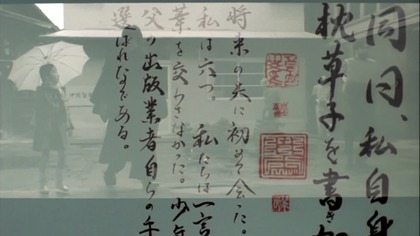 同日、私自身
枕草子を書き
将来の夫に初めて会った。
私は六つ。私たちは一言
葉を交わさなかった。少年
父の出版業者自らの手
選ばれたのである。